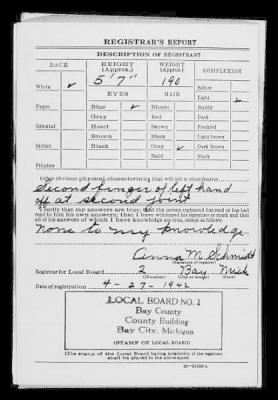 REGISTRAR'S REPORT
DESCRIPTION OF REGISTRANT
RACE HEIGHT (Approx.) WEIGHT (Approx.) COMPLEXION
5'7" 190
White ✓ EYES HAIR Sallow
Light ✓
Negro Blue ✓ Blonde Ruddy
Gray Red Dark
Oriental Hazel Brown Freckled
Brown Black Light brown
Indian Black Gray ✓ Dark brown
Bald Black
Filipino
Other obvious physical characteristics that will aid in identification
Second finger of left hand
off at second joint
I certify that my answers are true; that the person registered has read or has had
read to him his own answers; that I have witnessed his signature or mark and that
all of his answers of which I have knowledge are true, except as follows:
None to my knowledge
Anna M. Schmidt
(Signature of registrar)
Registrar for Local Board 2 Bay Mich
(Number) (City or county) (State)
Date of registration 4-27-1942
LOCAL BOARD NO. 2
Bay County
County Building
Bay City, Michigan
(STAMP OF LOCAL BOARD)
(The stamp of the Local Board having jurisdiction of the registrant
shall be placed in the above space)